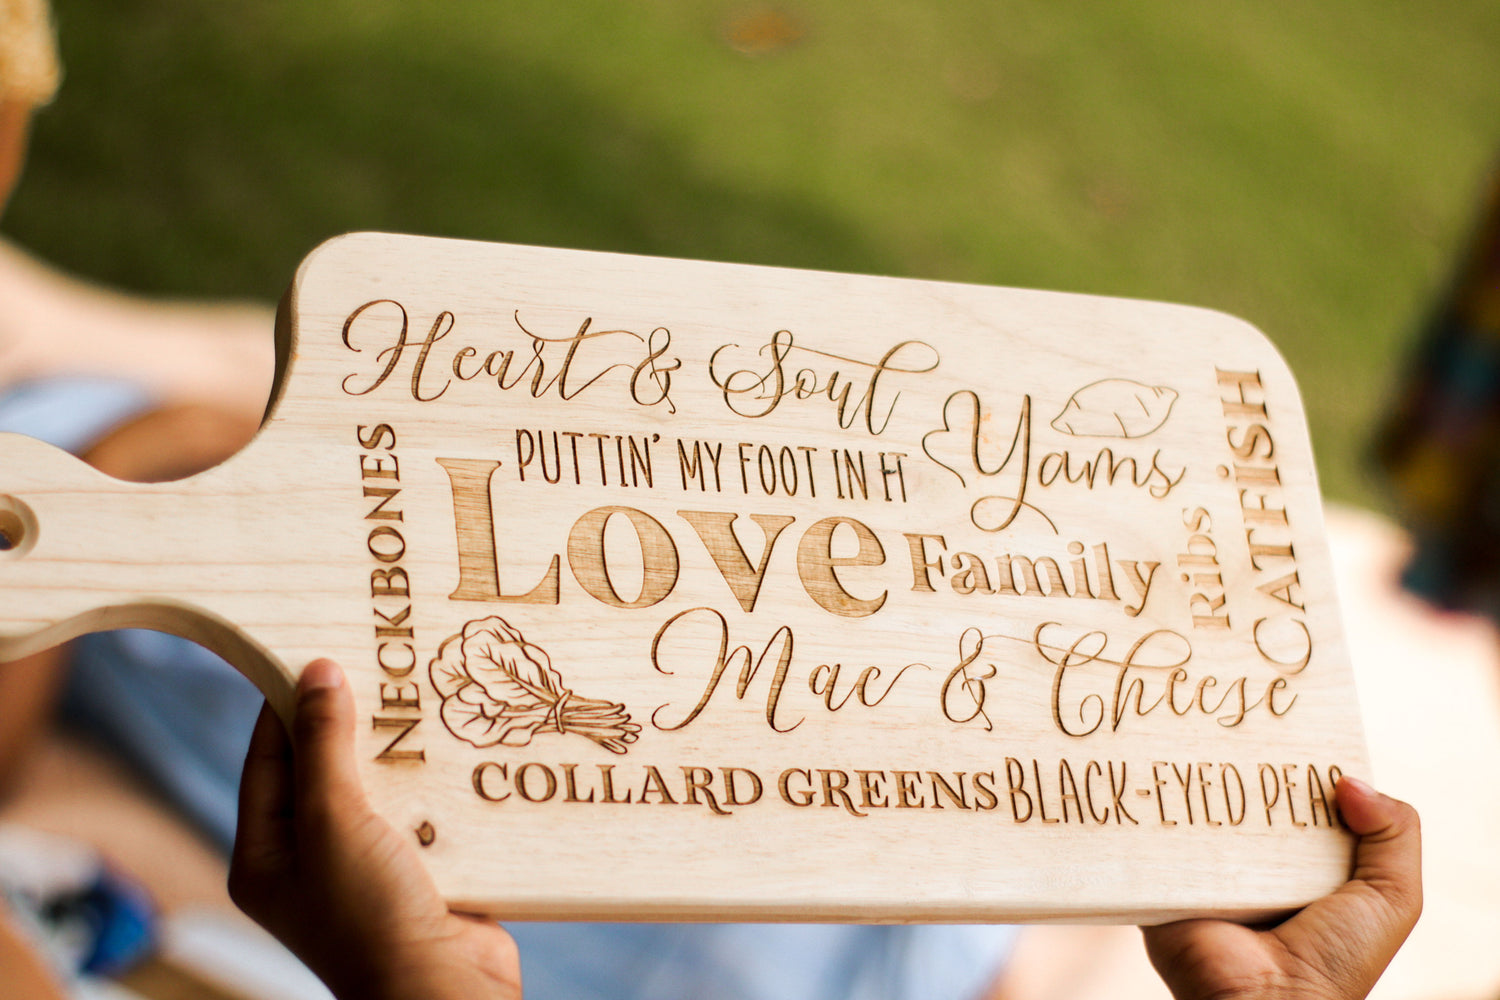 Heart & Soul
PUTTIN' MY FOOT IN IT
Yams
CATFISH
NECKBONES
Love
Family
Ribs
Mac & Cheese
COLLARD GREENS
BLACK-EYED PEAS